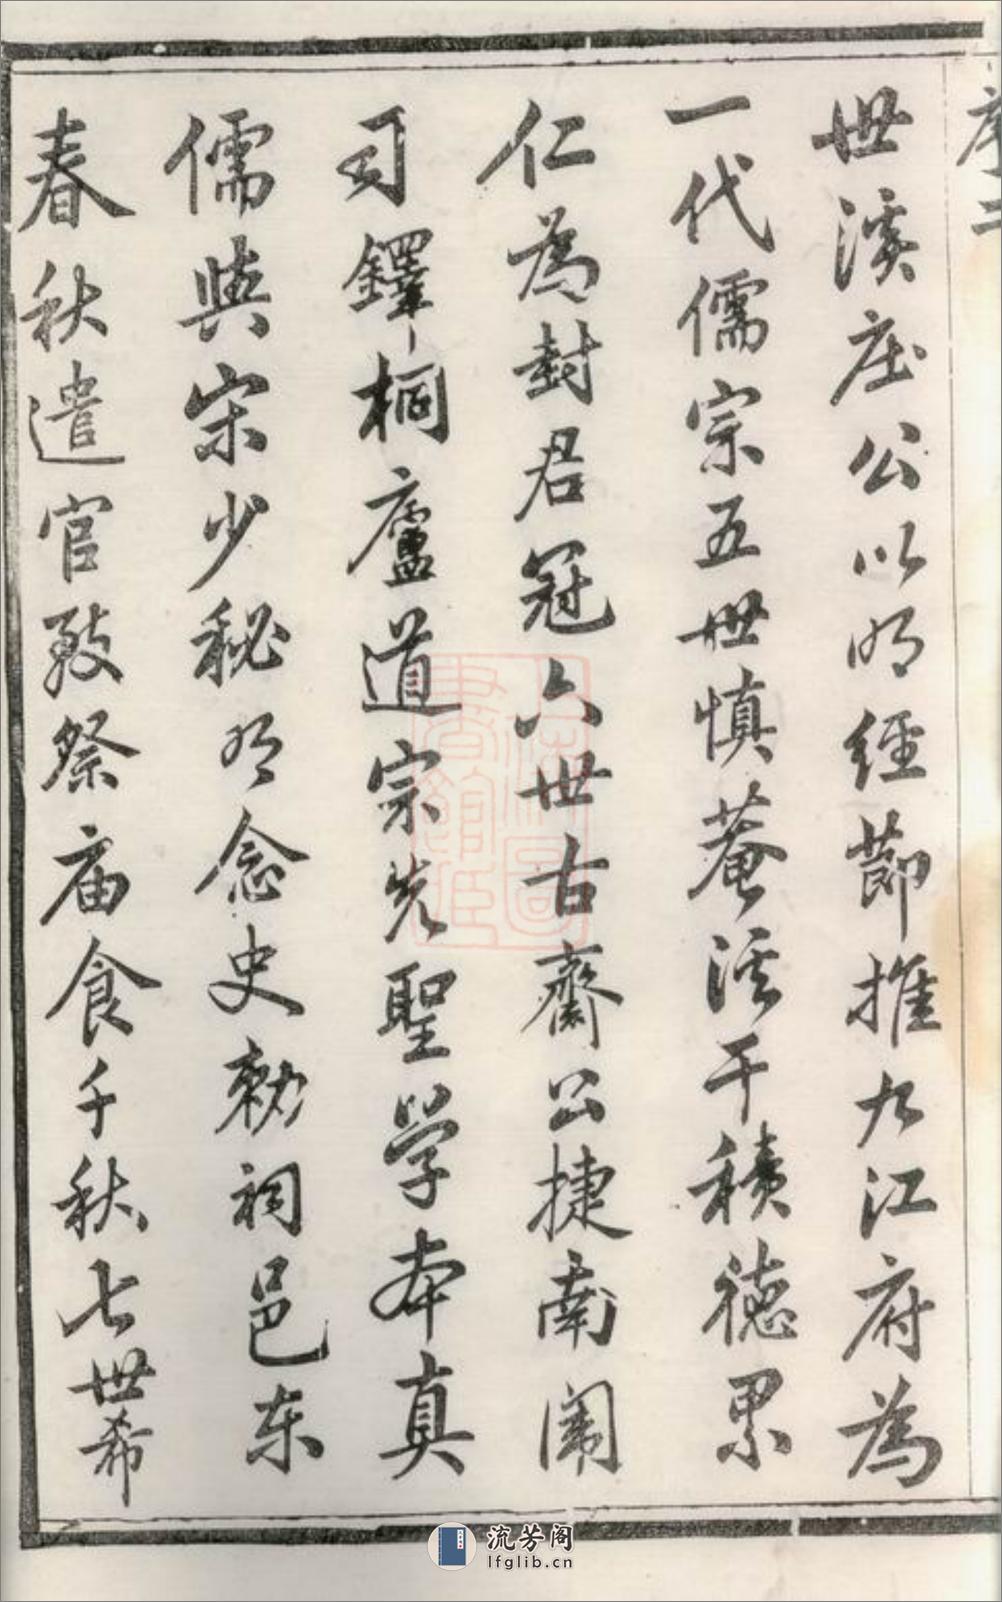 序二
世溪庄公以明經節推九江府為
一代儒宗五世慎菴溪干積德累
仁為封君冠六世古齋公捷南闈
司鐸桐廬道宗先聖學本真
儒與宋少秘可念史勅祠邑东
春秋遣官致祭庙食千秋七世希
流芳阁
lfglib.cn